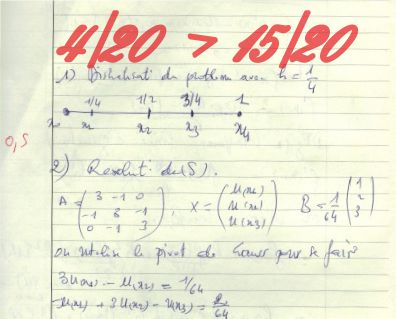 4/20 > 15/20
1) Discrétisati du problem avec h = 1/4
1/4 1/2 3/4 1
x0 x1 x2 x3 x4
0,5
2) Resoluti de (S).
A = (3 -1 0 / -1 3 -1 / 0 -1 3) X = (u(x1) / u(x2) / u(x3)) B = 1/64 (1 / 2 / 3)
on utilise le pivot de Gauss pour se faire
3u(x1) - u(x2) = 1/64
-u(x1) + 3u(x2) - u(x3) = 2/64